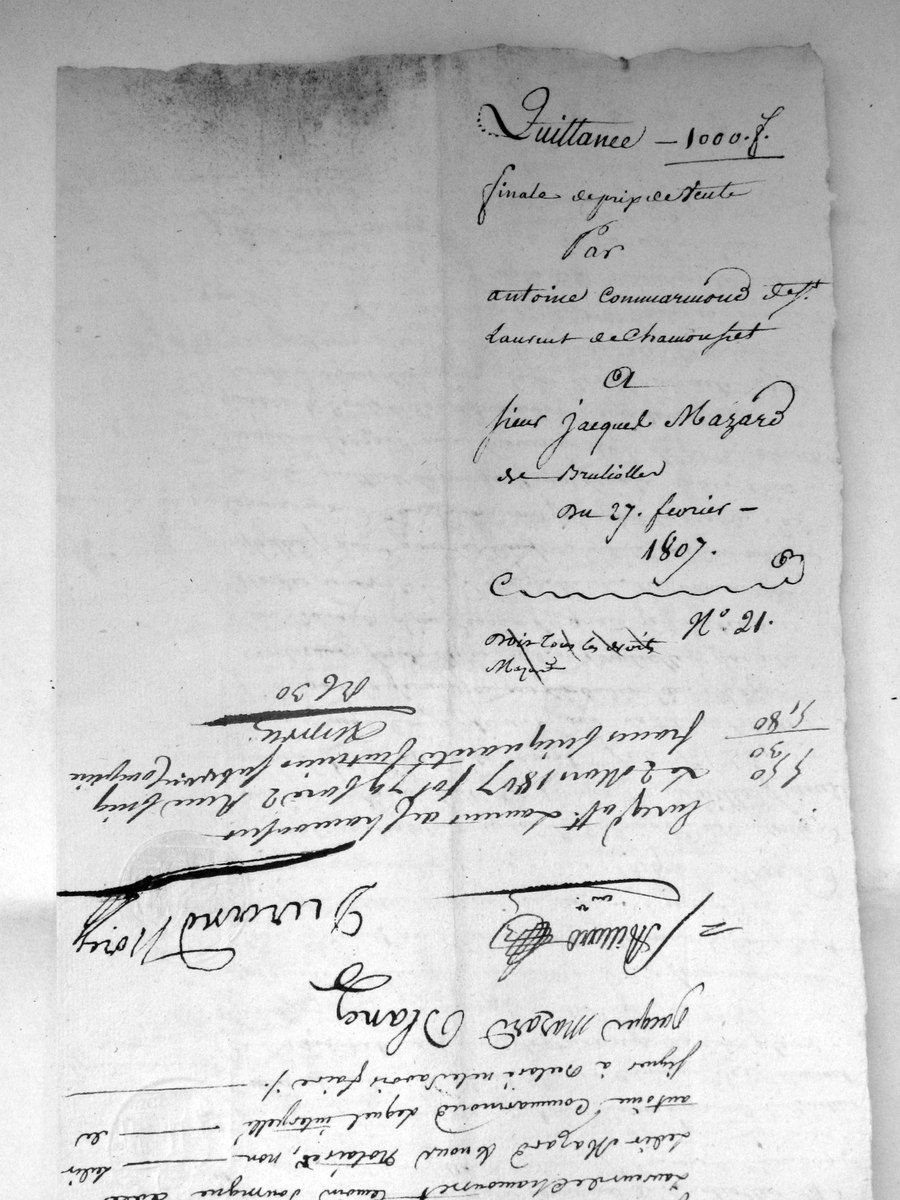 Quittance — 1000. f.
finale de prix de vente
Par
antoine Commarmond de St.
Laurent de Chamousset
A
sieur jacques Mazard
de Brullioller
Du 27. fevrier —
1807.
N° 21.
Doit tous les droits
Mazard
Laurent de Chamousset
ledit Mazard & nous Notaires, non ledit
antoine Commarmond lequel interpellé de
signer a declaré ne le savoir faire
jacques Mazard Blanc
Durand Nore
Enreg. a St. Laurent de Chamousset
le 2 Mars 1807 fol 79
francs cinquante centimes
5 50
5,80